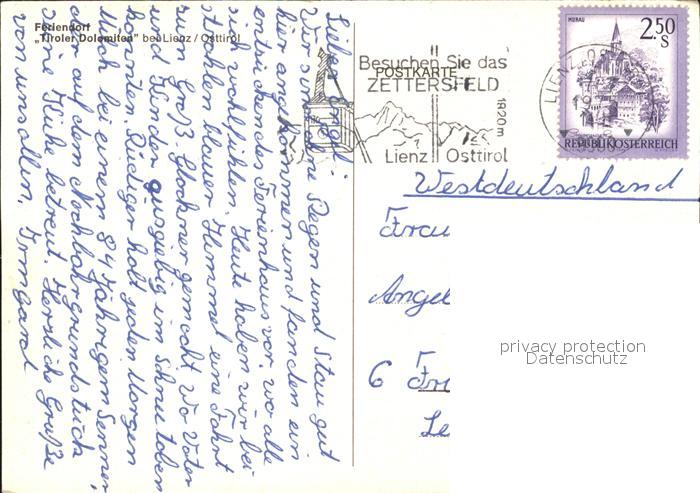 Feriendorf
„Tiroler Dolomiten" bei Lienz / Osttirol
Besuchen Sie das
POSTKARTE
ZETTERSFELD
1920 m
Lienz Osttirol
LIENZ
MURAU
2.50
S
REPUBLIK ÖSTERREICH
Westdeutschland
Frau
Angel
6 Fr
Le
privacy protection
Datenschutz
Liebe Angeli
Wir sind ohne Regen und Stau gut
hier angekommen und fanden ein
entzückendes Ferienhaus vor, wo alle
sich wohlfühlen. Heute haben wir bei
strahlen blauer Himmel eine Fahrt
zum Groß-Glockner gemacht. Wo Vater
und Kinder ausgiebig im Schnee toben
konnten. Ruediger holt jeden Morgen
Milch bei einem 84 Jährigem Senner
der auf dem Nachbahrgrundstück
seine Kühe betreut. Herzliche Grüße
von uns allen. Irmgard